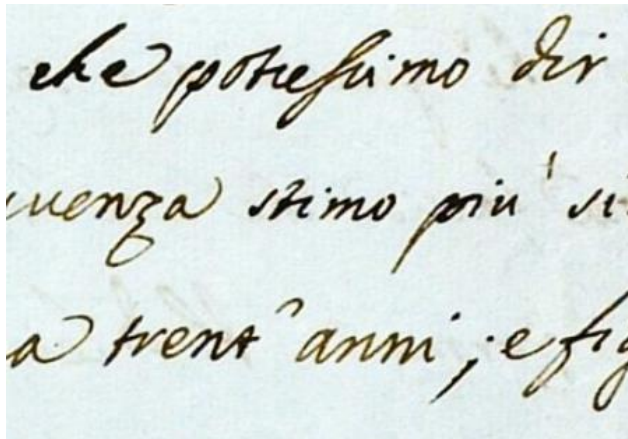 che potessimo dir
uenza stimo più si
a trent'anni; e fig